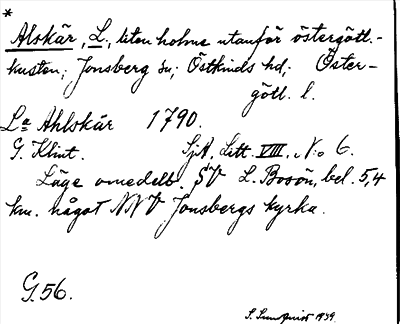 *
Alskär, L., liten holme utanför östergött.-
kusten; Jonsberg sn; Östkinds hd; Öster-
götl. l.
La Ahlskär 1790.
G. Klint. SjA, Litt. VIII. No 6.
Läge omedelb. SV L. Bosön, bel. 5,4
km. något NNV Jonsbergs kyrka.
G. 56.
1939